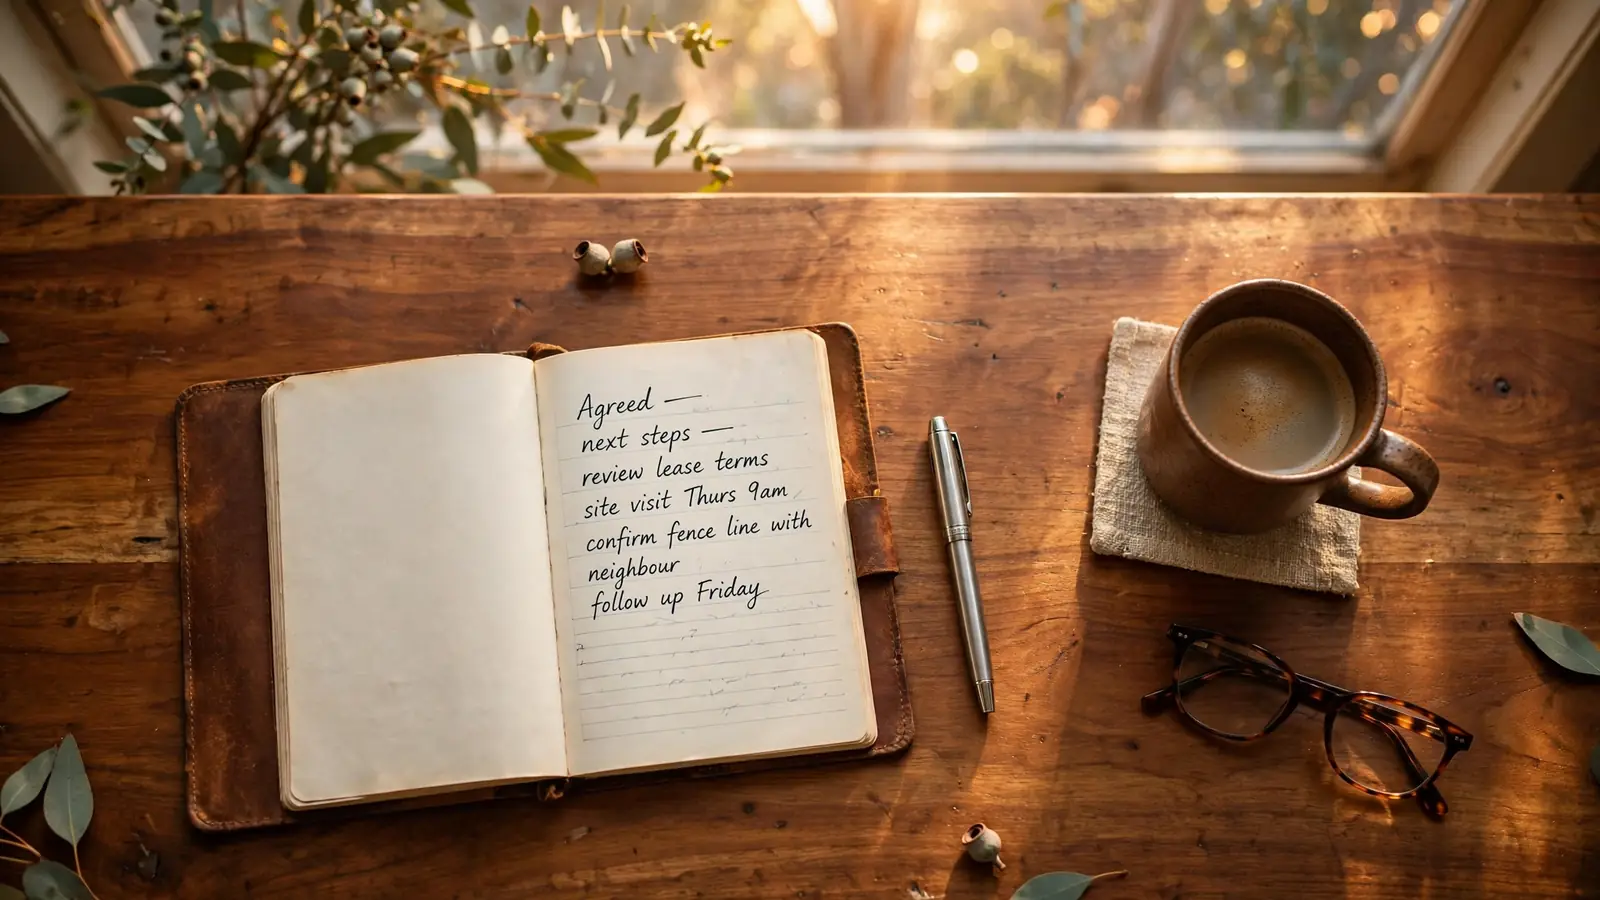 Agreed —
next steps —
review lease terms
site visit Thurs 9am
confirm fence line with
neighbour
follow up Friday